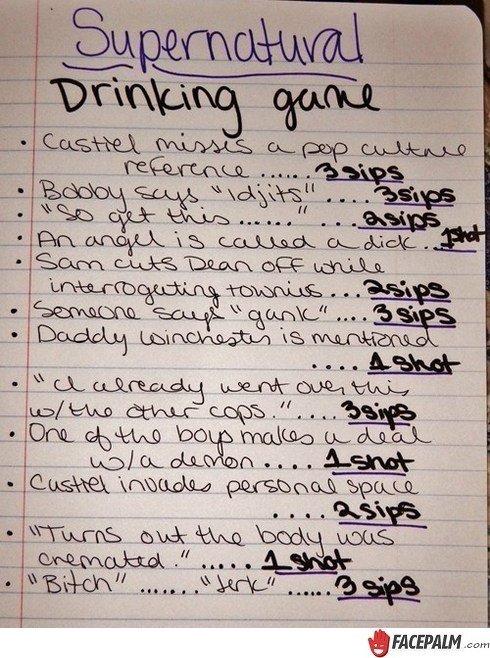 Supernatural
Drinking game
• Casttel misses a pop culture
reference ...... 3 sips
• Bobby says "Idjits" .... 3 sips
• "So get this ......" .. 2 sips
• An angel is called a dick... 1 shot
• Sam cuts Dean off while
interrogating townies ... 2 sips
• Someone says "gank" .... 3 sips
• Daddy Winchester is mentioned
.... 1 shot
• "I already went over this
w/the other cops." .... 3 sips
• One of the boys makes a deal
w/a demon .... 1 shot
• Casttel invades personal space
.... 2 sips
• "Turns out the body was
cremated." ..... 1 shot
• "Bitch" ....... "Jerk" ...... 3 sips
FACEPALM.com